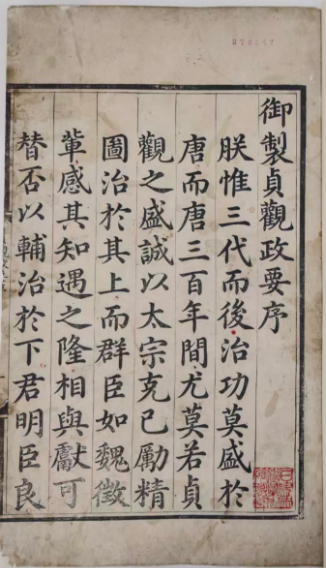 御製貞觀政要序
朕惟三代而後治功莫盛於
唐而唐三百年間尤莫若貞
觀之盛誠以太宗克己勵精
圖治於其上而群臣如魏徵
輩感其知遇之隆相與獻可
替否以輔治於下君明臣良